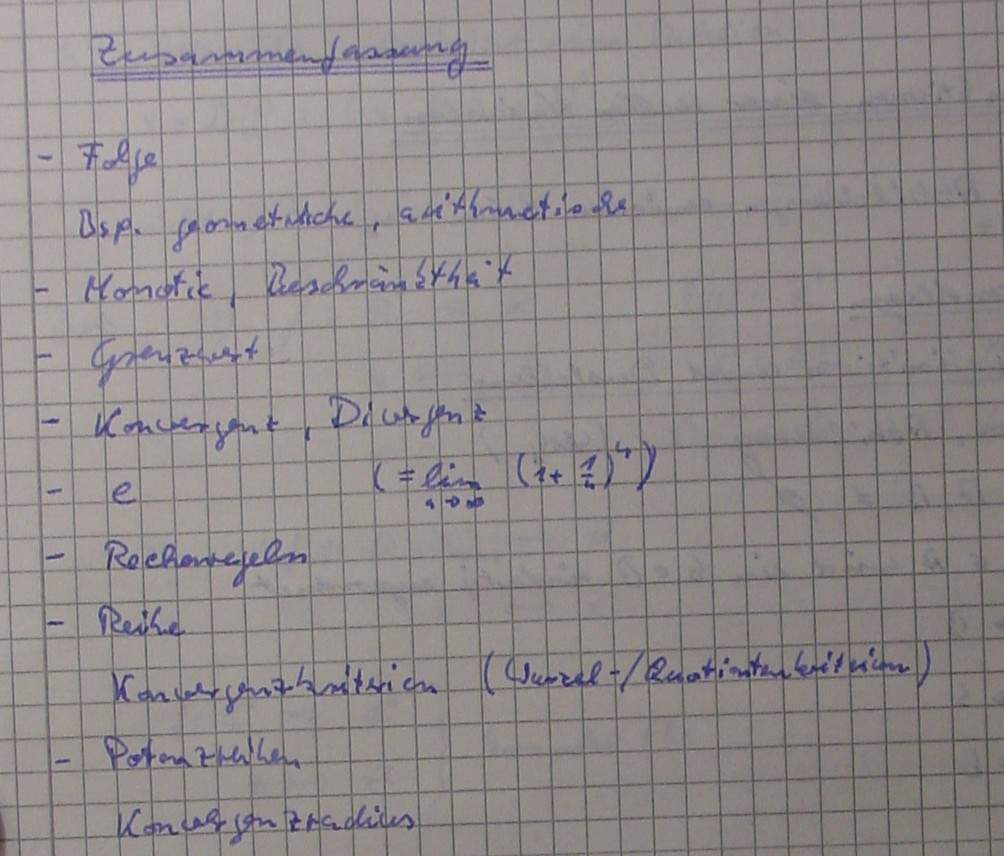 Zusammenfassung
- Folge
Bsp. geometrische, arithmetische
- Monotie, Beschränktheit
- Grenzwert
- Konvergenz, Divergenz
- e (= lim n→∞ (1 + 1/n)^n)
- Rechenregeln
- Reihe
Konvergenzkriterien (Wurzel-/Quotientenkriterium)
- Potenzreihen
Konvergenzradius